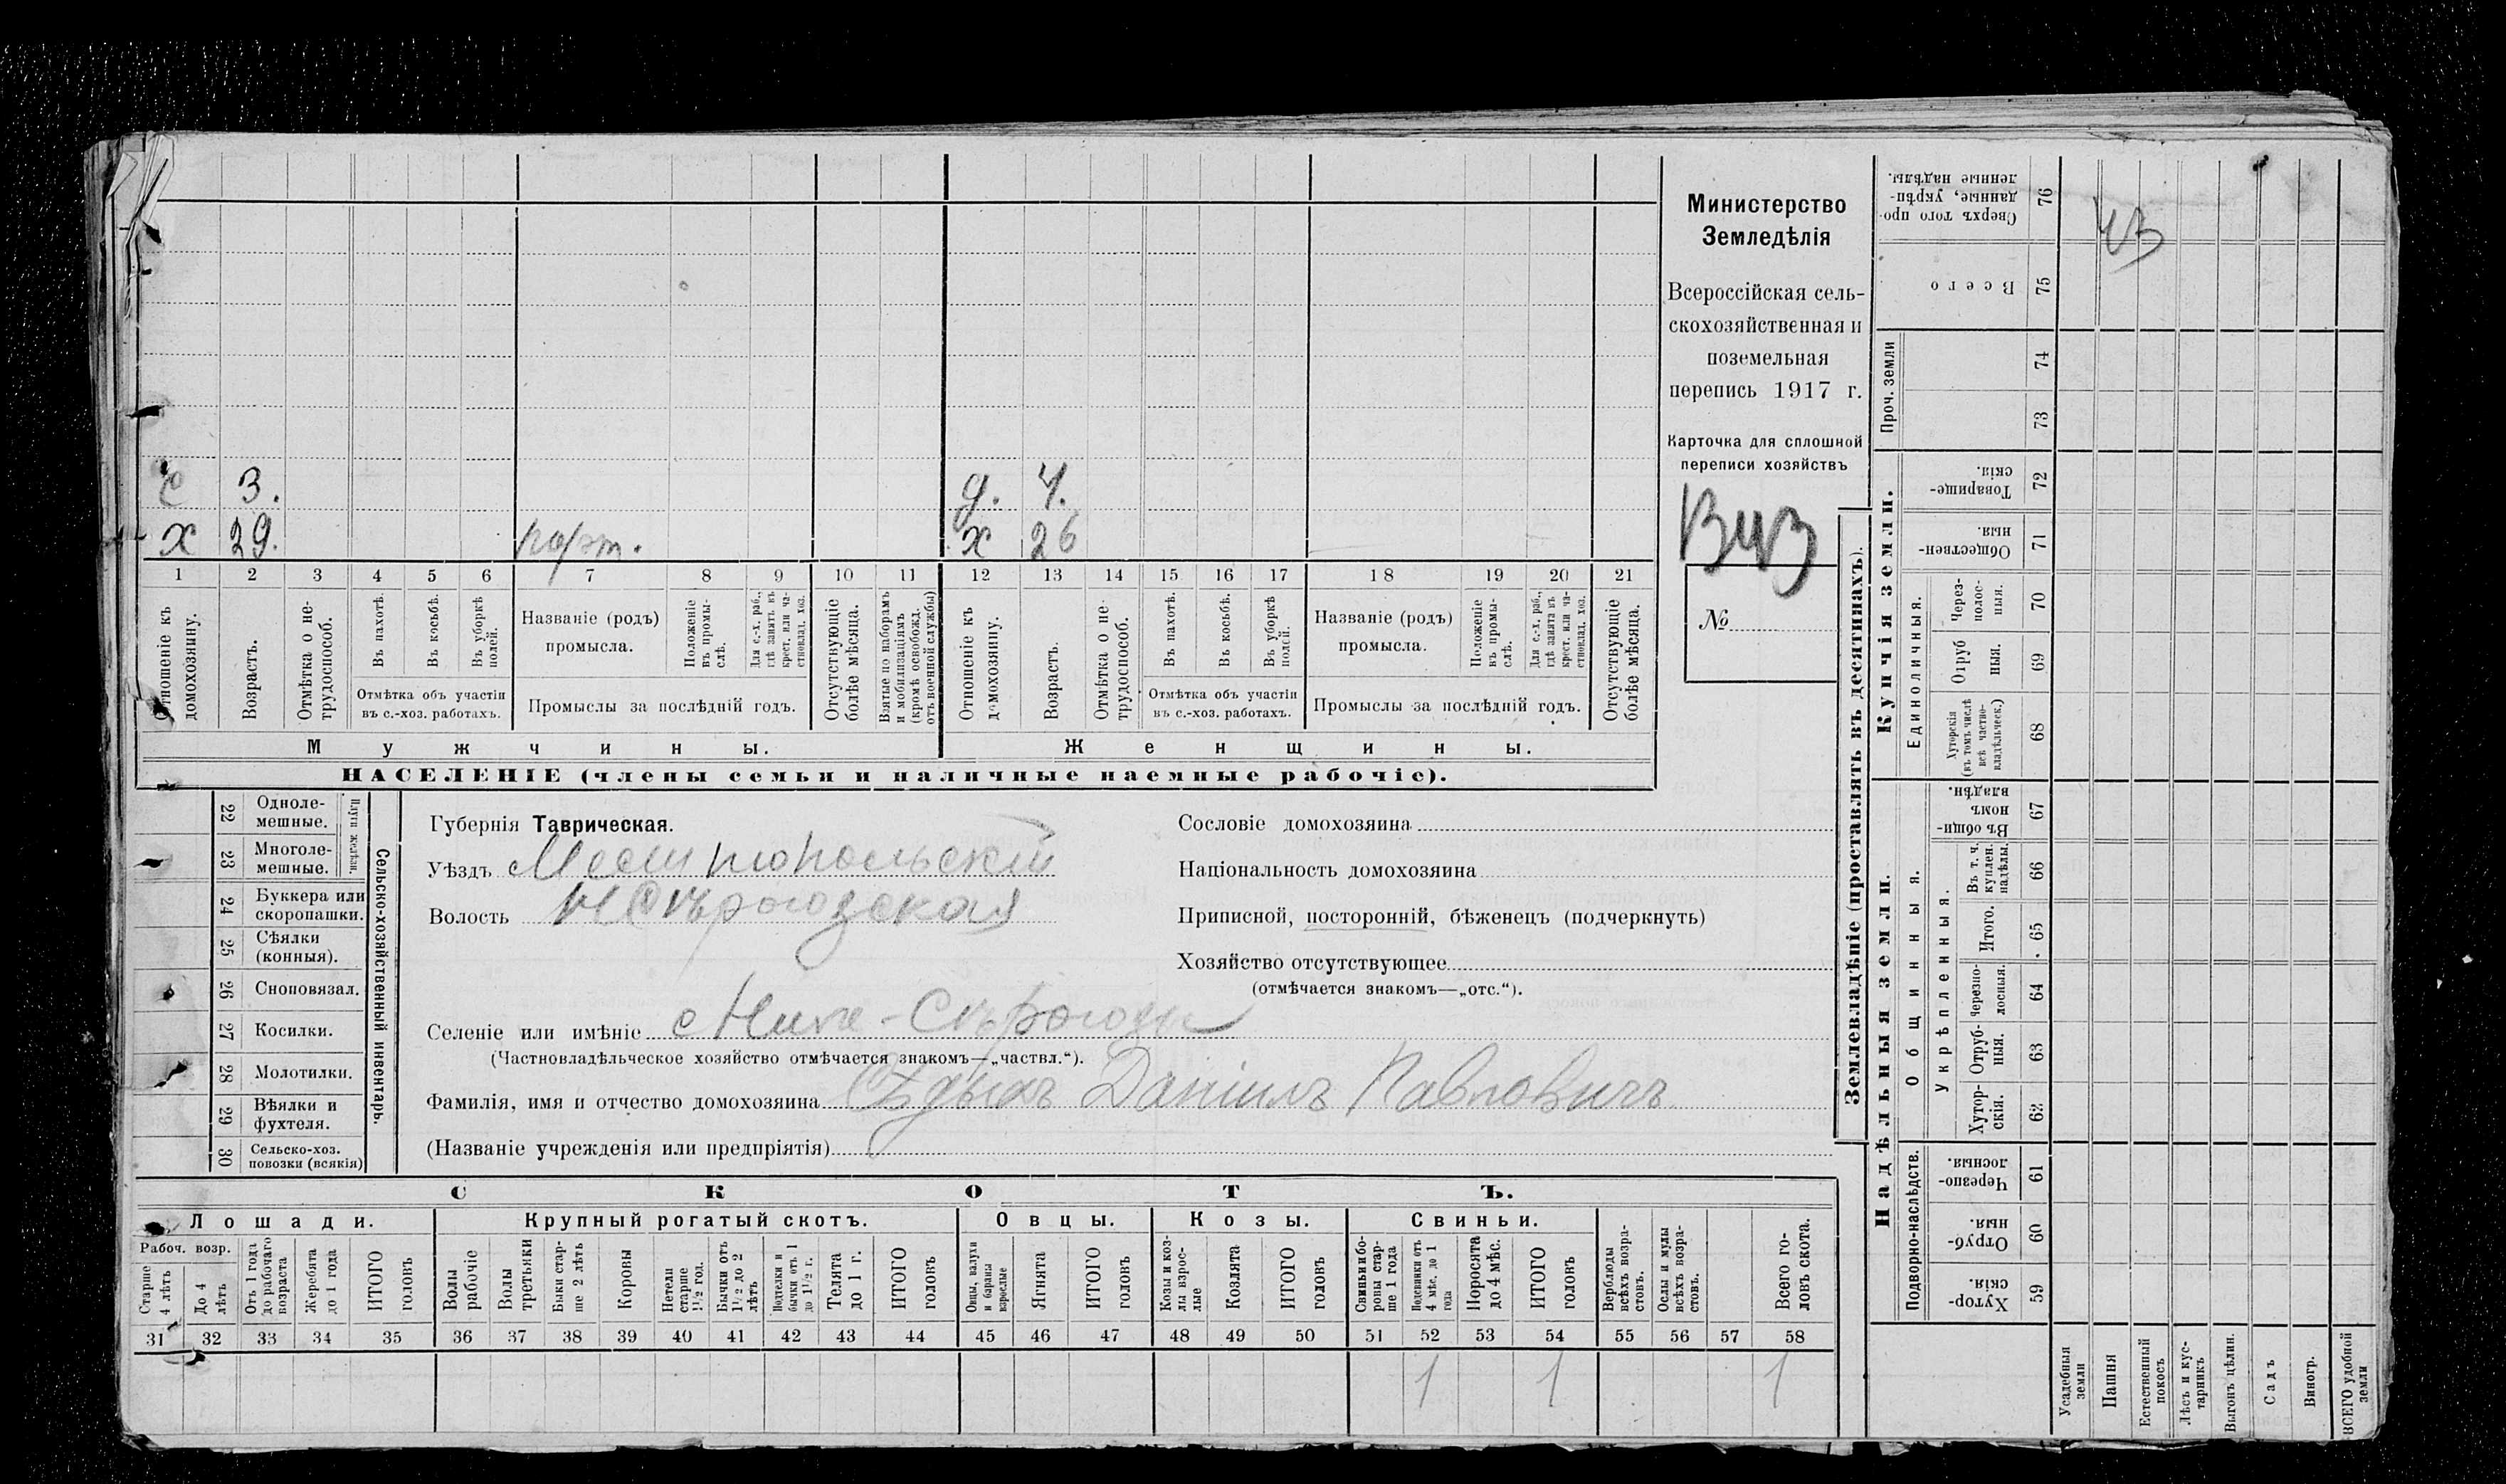 с 3. д. 4.
х 29. порт. х 26
1 2 3 4 5 6 7 8 9 10 11 12 13 14 15 16 17 18 19 20 21
Отношеніе къ домохозяину.
Возрастъ.
Отмѣтка о не-
трудоспособ.
Въ пахотѣ.
Въ косьбѣ.
Въ уборкѣ
полей.
Отмѣтка объ участіи
въ с.-хоз. работахъ.
Названіе (родъ)
промысла.
Положеніе
въ промы-
слѣ.
Для с.-х. раб.,
гдѣ занятъ въ
крест. или ча-
стновлад. хоз.
Промыслы за послѣдній годъ.
Отсутствующіе
болѣе мѣсяца.
Взятые по наборамъ
и мобилизаціямъ
(кромѣ освобожд.
отъ военной службы)
Отношеніе къ
домохозяину.
Возрастъ.
Отмѣтка о не-
трудоспособ.
Въ пахотѣ.
Въ косьбѣ.
Въ уборкѣ
полей.
Отмѣтка объ участіи
въ с.-хоз. работахъ.
Названіе (родъ)
промысла.
Положеніе
въ промы-
слѣ.
Для с.-х. раб.,
гдѣ занята въ
крест. или ча-
стновлад. хоз.
Промыслы за послѣдній годъ.
Отсутствующіе
болѣе мѣсяца.
Мужчины. Женщины.
НАСЕЛЕНІЕ (члены семьи и наличные наемные рабочіе).
Министерство
Земледѣлія
Всероссійская сель-
скохозяйственная и
поземельная
перепись 1917 г.
Карточка для сплошной
переписи хозяйствъ
№
Сельско-хозяйственный инвентарь.
Плуги желѣзн.
22 Одноле-
мешные.
23 Многоле-
мешные.
24 Буккера или
скоропашки.
25 Сѣялки
(конныя).
26 Сноповязал.
27 Косилки.
28 Молотилки.
29 Вѣялки и
фухтеля.
30 Сельско-хоз.
повозки (всякія)
Губернія Таврическая.
Уѣздъ Мелитопольскій
Волость Н Сѣрогозская
Селеніе или имѣніе с Ниже-Сѣрогозы
(Частновладѣльческое хозяйство отмѣчается знакомъ—„частвл.“).
Фамилія, имя и отчество домохозяина Сѣдыхъ Даніилъ Павловичъ
(Названіе учрежденія или предпріятія)
Сословіе домохозяина
Національность домохозяина
Приписной, посторонній, бѣженецъ (подчеркнуть)
Хозяйство отсутствующее
(отмѣчается знакомъ—„отс.“).
СКОТЪ.
Лошади. Крупный рогатый скотъ. Овцы. Козы. Свиньи.
Рабоч. возр.
Старше
4 лѣтъ
До 4
лѣтъ
Отъ 1 года
до рабочаго
возраста
Жеребята
до 1 года
ИТОГО
головъ
Волы
рабочіе
Волы
третьяки
Быки стар-
ше 2 лѣтъ
Коровы
Нетели
старше
1½ год.
Бычки отъ
1½ до 2
лѣтъ
Подтелки и
бычки отъ 1
до 1½ г.
Телята
до 1 г.
ИТОГО
головъ
Овцы, валухи
и бараны
взрослые
Ягнята
ИТОГО
головъ
Козы и коз-
лы взрос-
лые
Козлята
ИТОГО
головъ
Свиньи и бо-
ровы стар-
ше 1 года
Подсвинки отъ
4 мѣс. до 1
года
Поросята
до 4 мѣс.
ИТОГО
головъ
Верблюды
всѣхъ возра-
стовъ.
Ослы и мулы
всѣхъ возра-
стовъ.
Всего го-
ловъ скота.
31 32 33 34 35 36 37 38 39 40 41 42 43 44 45 46 47 48 49 50 51 52 53 54 55 56 57 58
1 1 1
Землевладѣніе (проставлять въ десятинахъ).
Сверхъ того про-
данные, укрѣп-
ленные надѣлы.
76
Всего
75
Проч. земли
74
73
Купчія земли.
Товарище-
скія.
72
Обществен-
ныя.
71
Единоличныя.
Через-
полос-
ныя.
70
Отруб
ныя.
69
Хуторскія
(въ томъ числѣ
всѣ частно-
владѣльческ.)
68
Надѣльныя земли.
Общинныя.
Въ общин-
номъ
владѣн.
67
Укрѣпленныя.
Въ т. ч.
куплен.
надѣлы.
66
Итого.
65
Черезпо-
лосныя.
64
Отруб-
ныя.
63
Хутор-
скія.
62
Подворно-наслѣдств.
Черезпо-
лосныя.
61
Отруб-
ныя.
60
Хутор-
скія.
59
Усадебныя
земли
Пашня
Естественный
покосъ
Лѣсъ и кус-
тарникъ
Выгонъ цѣлин.
Садъ
Виногр.
ВСЕГО удобной
земли